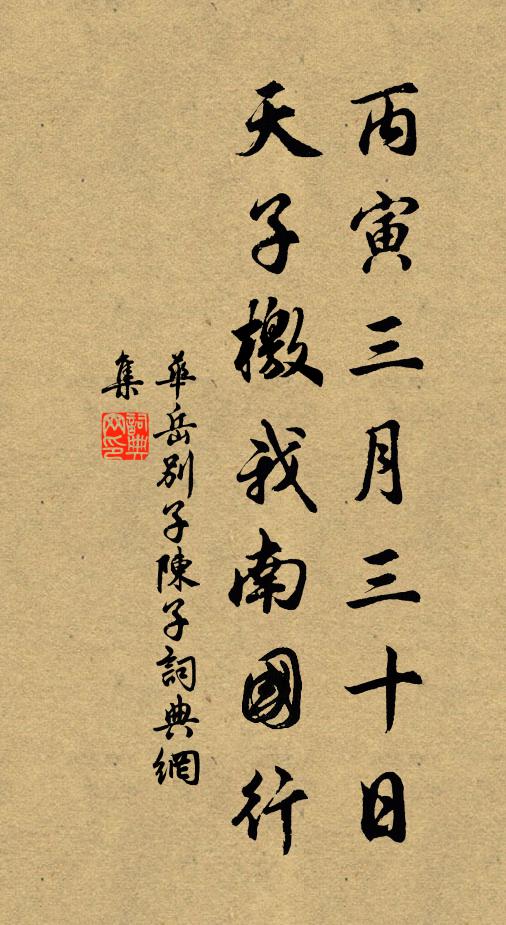 丙寅三月三十日
天子檄我南國行
華岳別子陳子詞典網
集
詞典網印